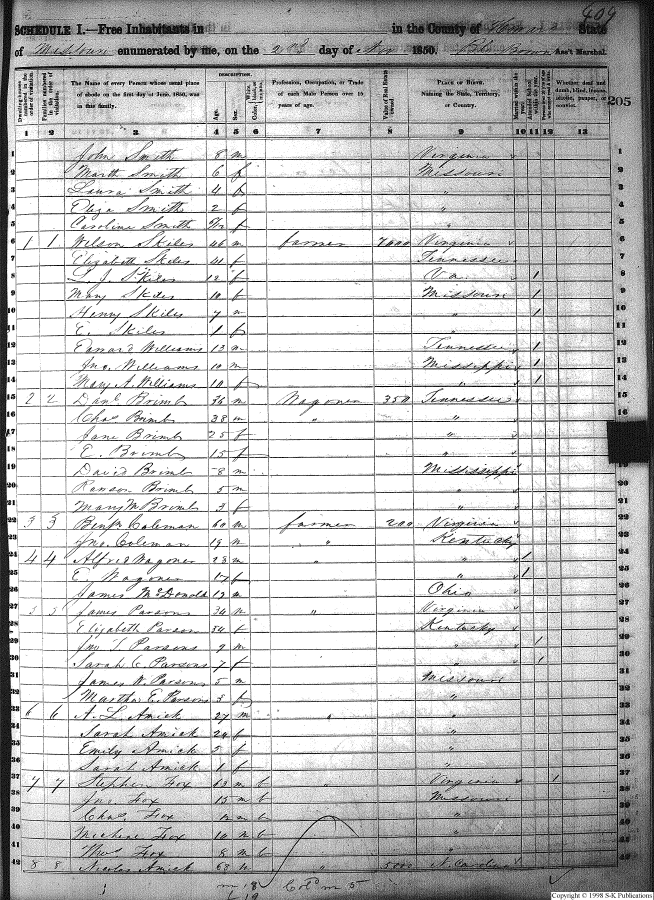 409
SCHEDULE I.—Free Inhabitants in in the County of State
of Missouri enumerated by me, on the day of Nov 1850. Brown Ass't Marshal.
205
Dwelling houses numbered in the order of visitation.
Families numbered in the order of visitation.
The Name of every Person whose usual place of abode on the first day of June, 1850, was in this family.
DESCRIPTION.
Age. Sex. Color.
Profession, Occupation, or Trade of each Male Person over 15 years of age.
Value of Real Estate owned.
PLACE OF BIRTH. Naming the State, Territory, or Country.
Married within the year.
Whether deaf and dumb, blind, insane, idiotic, pauper, or convict.
1 2 3 4 5 6 7 8 9 10 11 12 13
1 John Smith 8 m Virginia 1
2 Marth Smith 6 f Missouri 2
3 Laura Smith 4 f " 3
4 Eliza Smith 2 f " 4
5 Caroline Smith f " 5
6 1 1 Wilson Skiles 46 m farmer 7000 Virginia 6
7 Elizabeth Skiles 41 f Tennessee 7
8 L. J. Skiles 12 f Va. 1 8
9 Mary Skiles 10 f Missouri 1 9
10 Henry Skiles 7 m " 1 10
11 E. Skiles 1 f " 11
12 Edward Williams 13 m Tennessee 1 12
13 Jno. Williams 10 m Missippi 1 13
14 Mary A. Williams 10 f " 1 14
15 2 2 Danl Brimb 36 m Wagoner 350 Tennessee 15
16 Chas Brimb 38 m " " 16
17 Jane Brimb 25 f " 17
18 E. Brimb 15 f " 18
19 David Brimb 8 m Mississippi 19
20 Ranson Brimb 5 m " 20
21 Mary M Brimb 3 f " 21
22 3 3 Benjn Coleman 60 m farmer 200 Virginia 22
23 Jno. Coleman 19 m " Kentucky 23
24 4 4 Alfred Wagoner 23 m " " 1 24
25 E. Wagoner 17 f " 1 25
26 James McDonald 12 m Ohio 26
27 5 5 James Parsons 34 m " Virginia 27
28 Elizabeth Parson 34 f Kentucky 28
29 Jno T. Parsons 9 m " 1 29
30 Sarah C. Parsons 7 f " 1 30
31 James W. Parsons 5 m Missouri 31
32 Martha E. Parsons 3 f " 32
33 6 6 A. L. Amick 27 m " " 33
34 Sarah Amick 24 f " 34
35 Emily Amick 5 f " 35
36 Sarah Amick 1 f " 36
37 7 7 Stephen Fox 63 m b " Virginia 1 37
38 Jno. Fox 15 m b Missouri 38
39 Chas. Fox 12 m b " 39
40 Fox 10 m b " 40
41 Thos Fox 8 m b " 41
42 8 8 Nicolas Amick 63 m " 5000 N. Carolina 42
m 18 Cold m 5
f 19
Copyright © 1998 S-K Publications